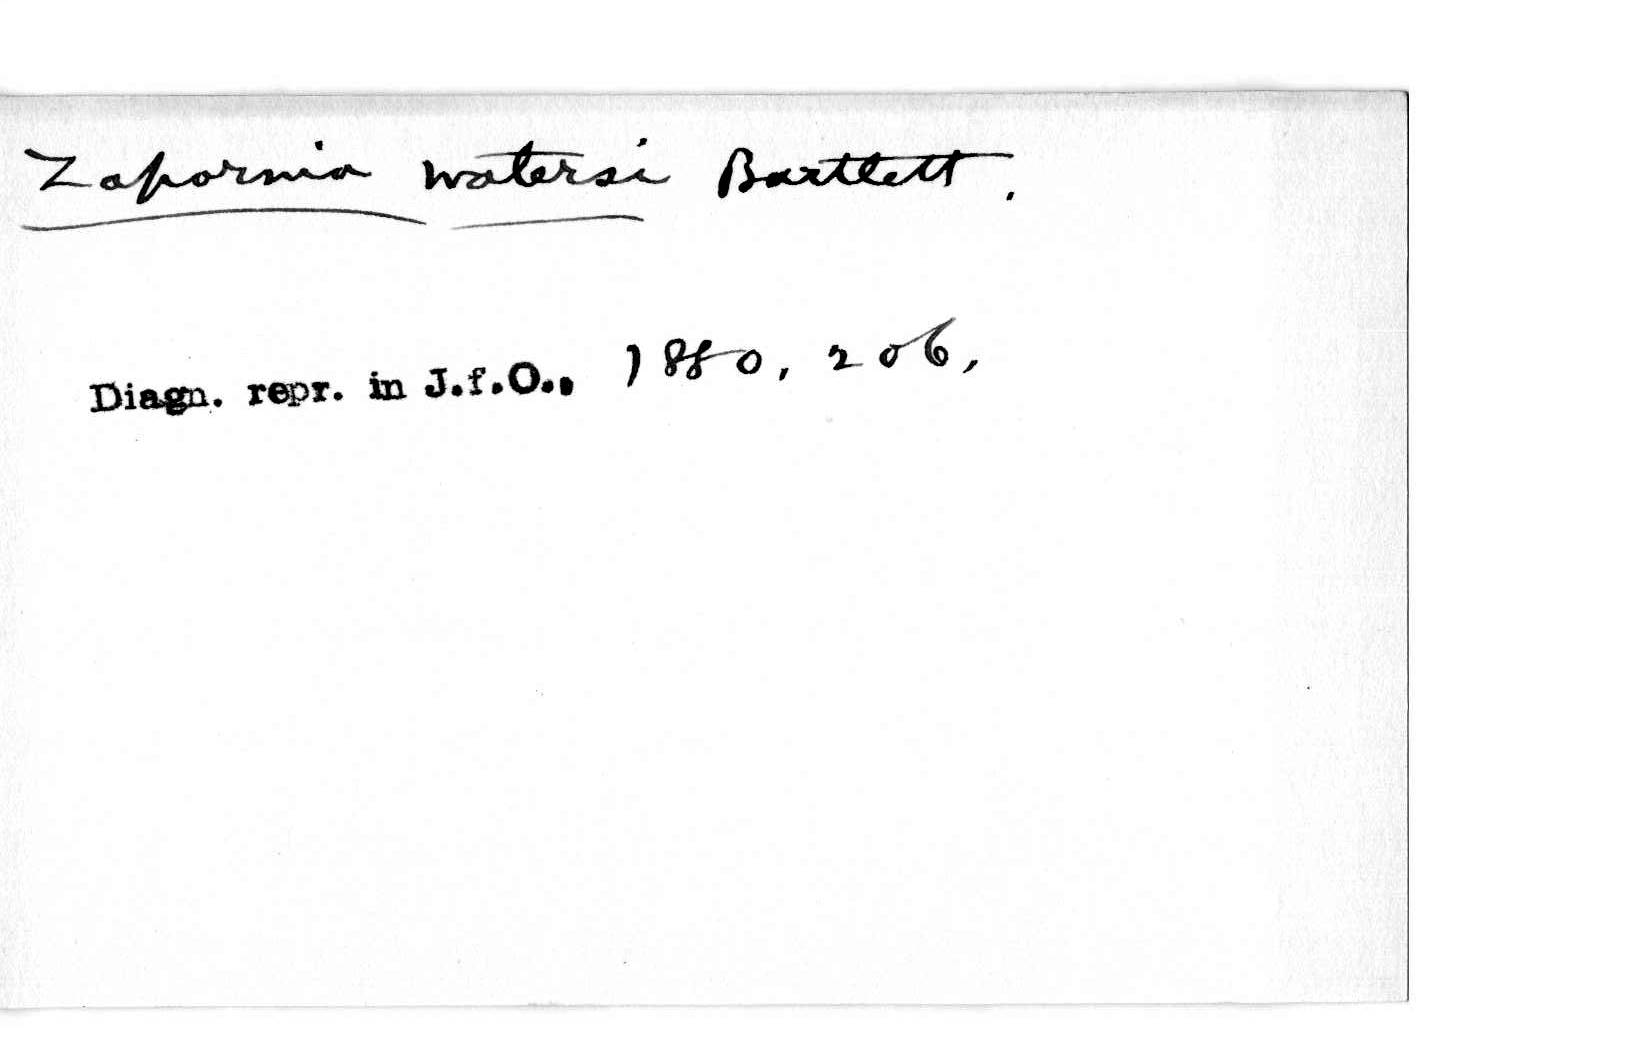 Zapornia watersi Bartlett.
Diagn. repr. in J.f.O., 1880, 206,